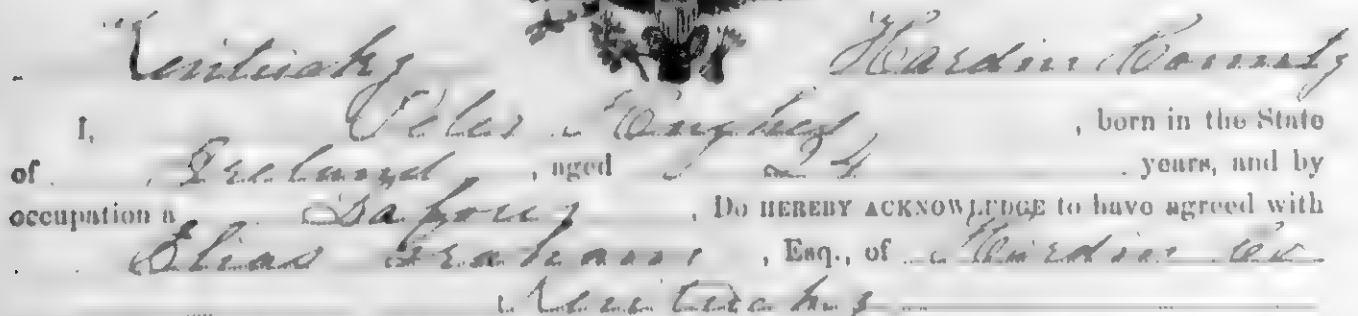 Kentucky Hardin County
I, Peter, born in the State
of Ireland, aged 24 years, and by
occupation a, Do HEREBY ACKNOWLEDGE to have agreed with
Elias Graham, Esq., of Hardin Co.
Kentucky